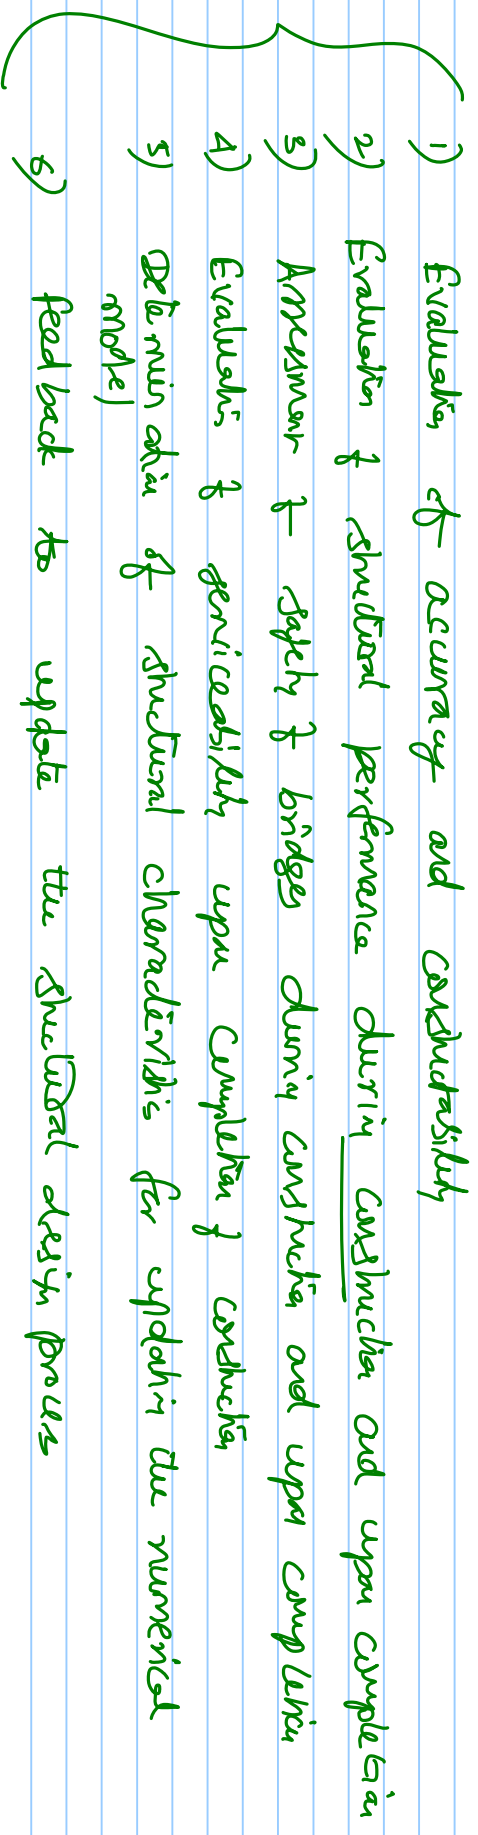 1) Evaluation of accuracy and constructability
2) Evaluation of structural performance during construction and upon completion
3) Assessment of safety of bridges during construction and upon completion
4) Evaluation of serviceability upon completion of construction
5) Determination of structural characteristics for updating the numerical
model
6) feedback to update the structural design process